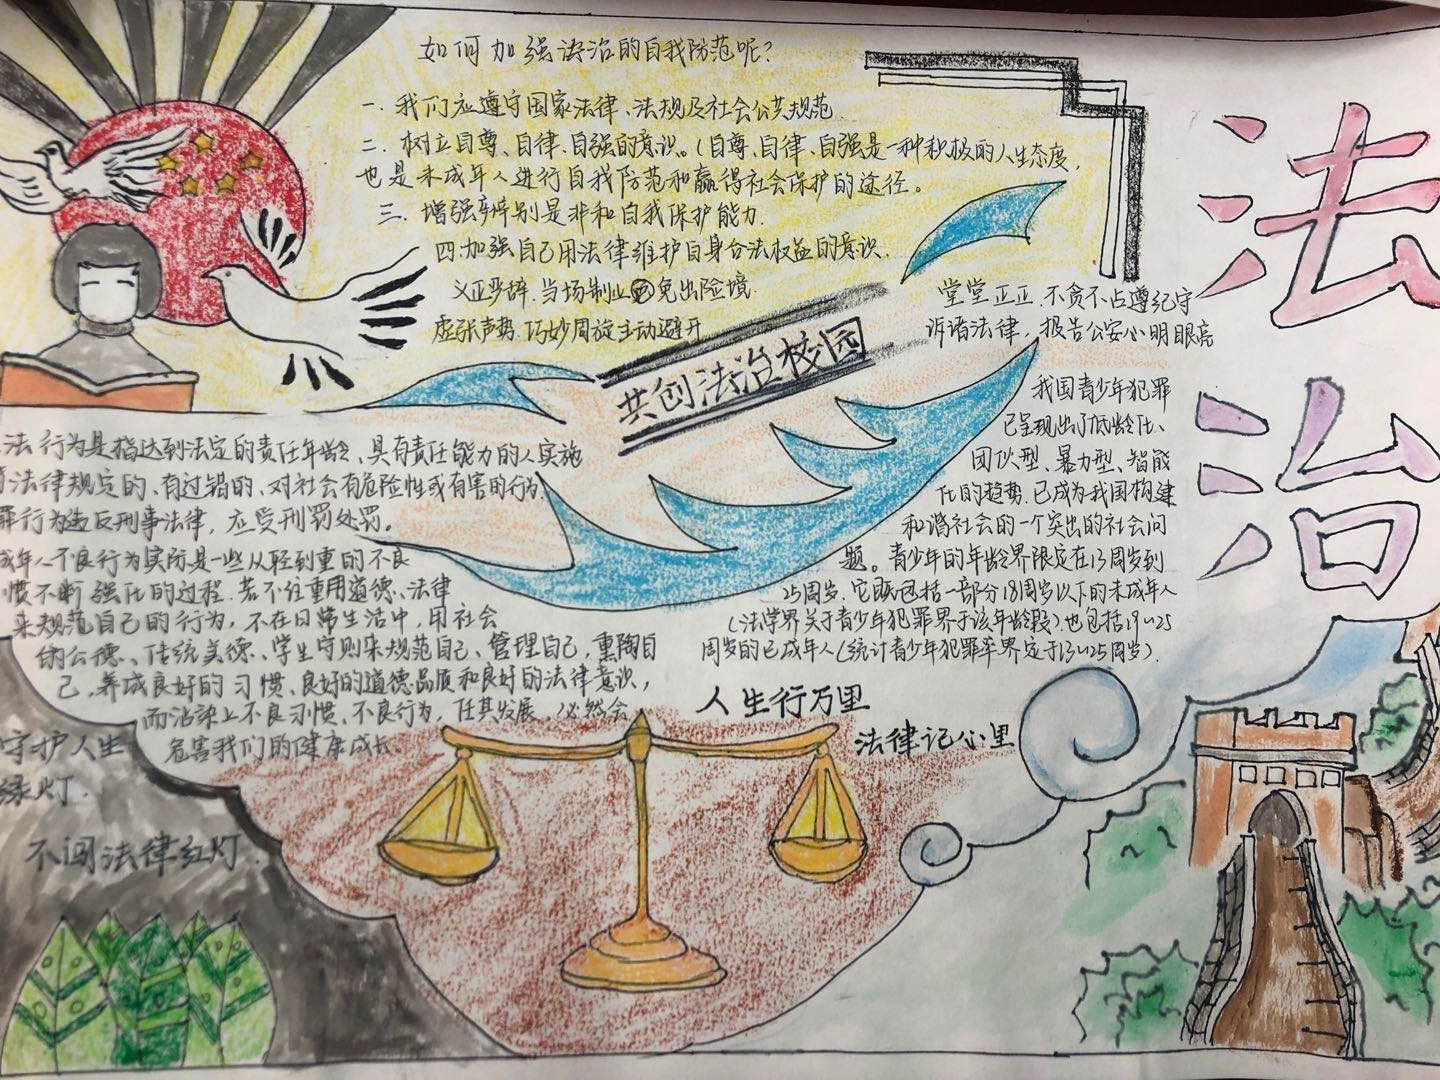 如何加强法治的自我防范呢？
一、我们应遵守国家法律、法规及社会公共规范
二、树立自尊、自律、自强的意识。（自尊、自律、自强是一种积极的人生态度，
也是未成年人进行自我防范和赢得社会保护的途径。
三、增强辨别是非和自我保护能力.
四.加强自己用法律维护自身合法权益的意识.
义正严辞.当场制止 免出险境
虚张声势.巧妙周旋主动避开
堂堂正正.不贪不占遵纪守
诉诸法律，报告公安小明眼亮
共创法治校园
法治
我国青少年犯罪
已呈现出了低龄化、
团伙型、暴力型、智能
化的趋势.已成为我国构建
和谐社会的一个突出的社会问
题。青少年的年龄界限定在13周岁到
25周岁.它既包括一部分18周岁以下的未成年人
（法学界关于青少年犯罪界于该年龄段）也包括19~25
周岁的已成年人（统计青少年犯罪率界定于13~25周岁）.
法行为是指达到法定的责任年龄、具有责任能力的人实施
法律规定的、有过错的、对社会有危险性或有害的行为.
罪行为违反刑事法律，应受刑罚处罚。
成年人不良行为实际是一些从轻到重的不良
惯不断强化的过程.若不注重用道德、法律
来规范自己的行为，不在日常生活中，用社会
的公德、传统美德、学生守则来规范自己、管理自己，熏陶自
己.养成良好的习惯、良好的道德品质和良好的法律意识，
而沾染上不良习惯、不良行为，任其发展，必然会
危害我们的健康成长。
人生行万里
法律记心里
守护人生
绿灯.
不闯法律红灯.